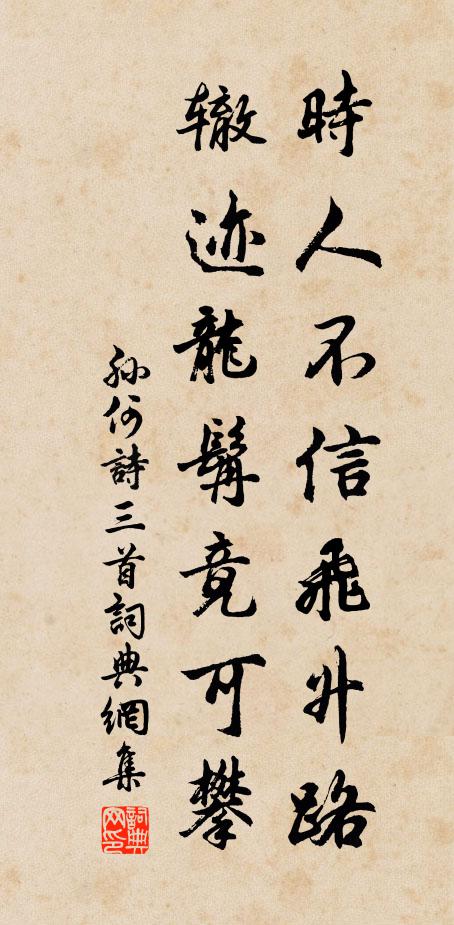 時人不信飛升路
辙迹龍髯竟可攀
孫何詩三首詞典網集
詞典网印